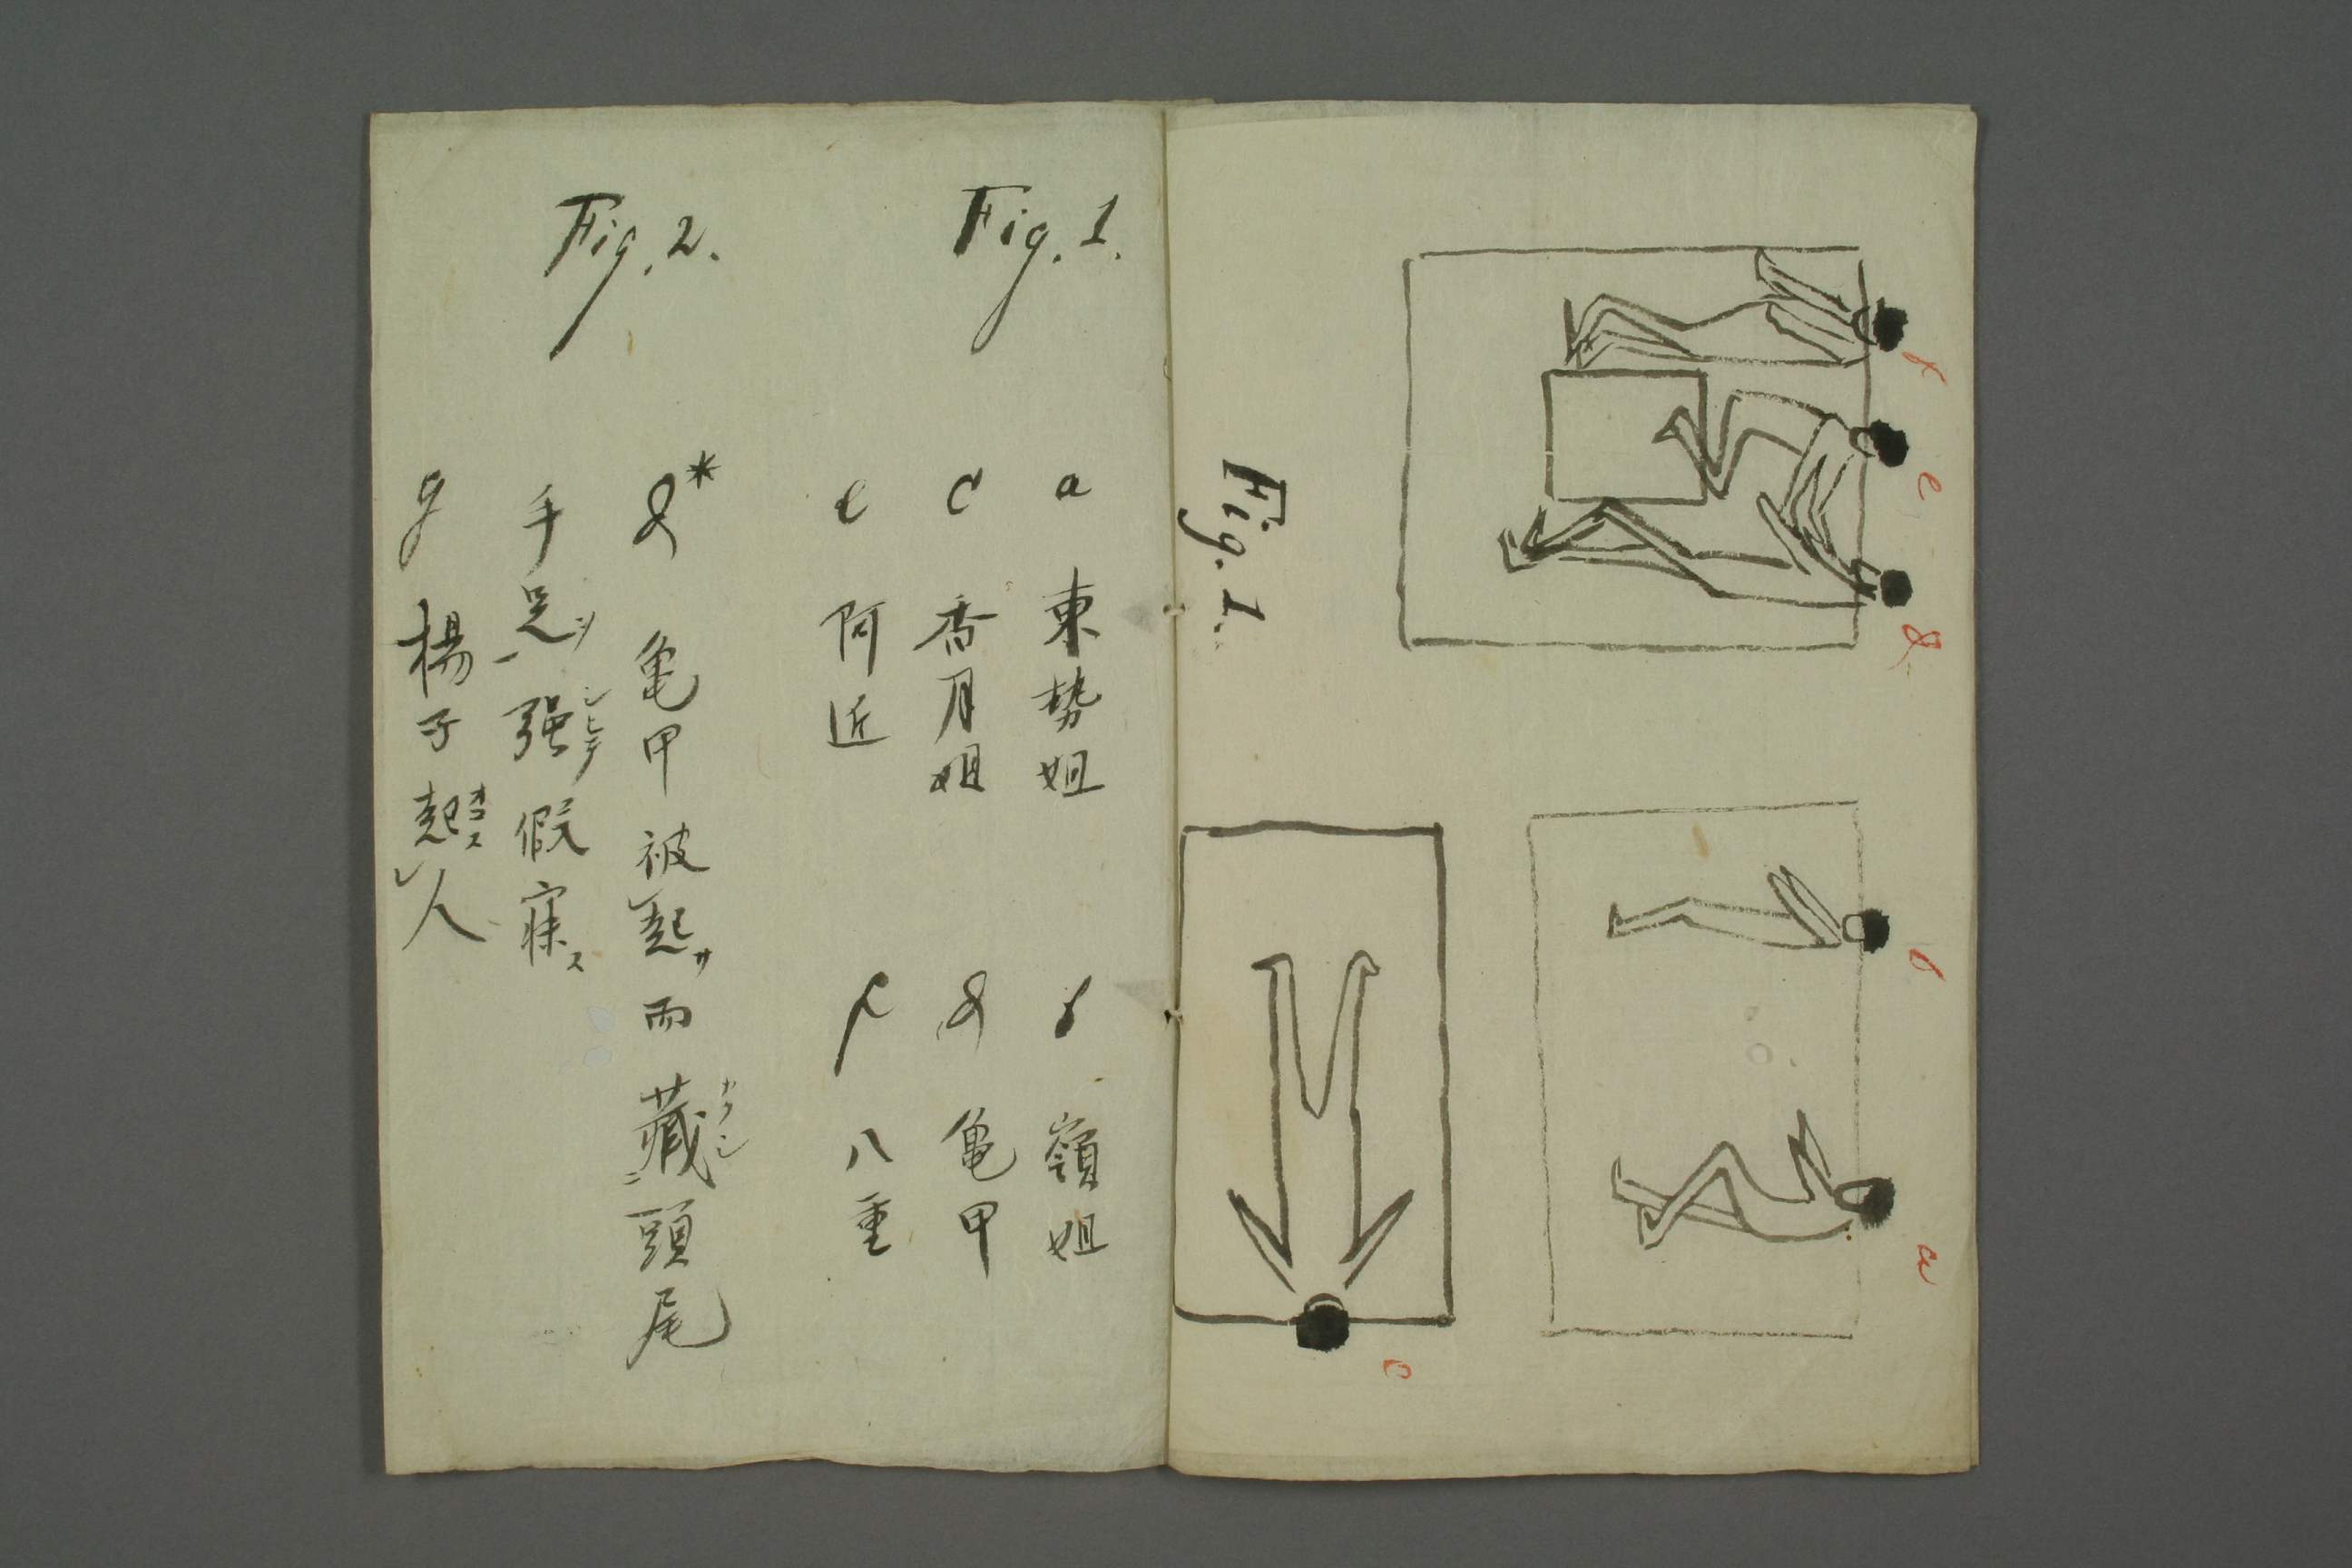 f
e
d
b
a
c
Fig. 1.
Fig. 1.
a 東勢姐
b 嶺姐
c 香月姐
d 亀甲
e 阿近
f 八重
Fig. 2.
d* 亀甲被レ起サ而藏カクシ二頭尾
手足ヲ一強シヒテ假寐ス
g 楊子起オコスレ人